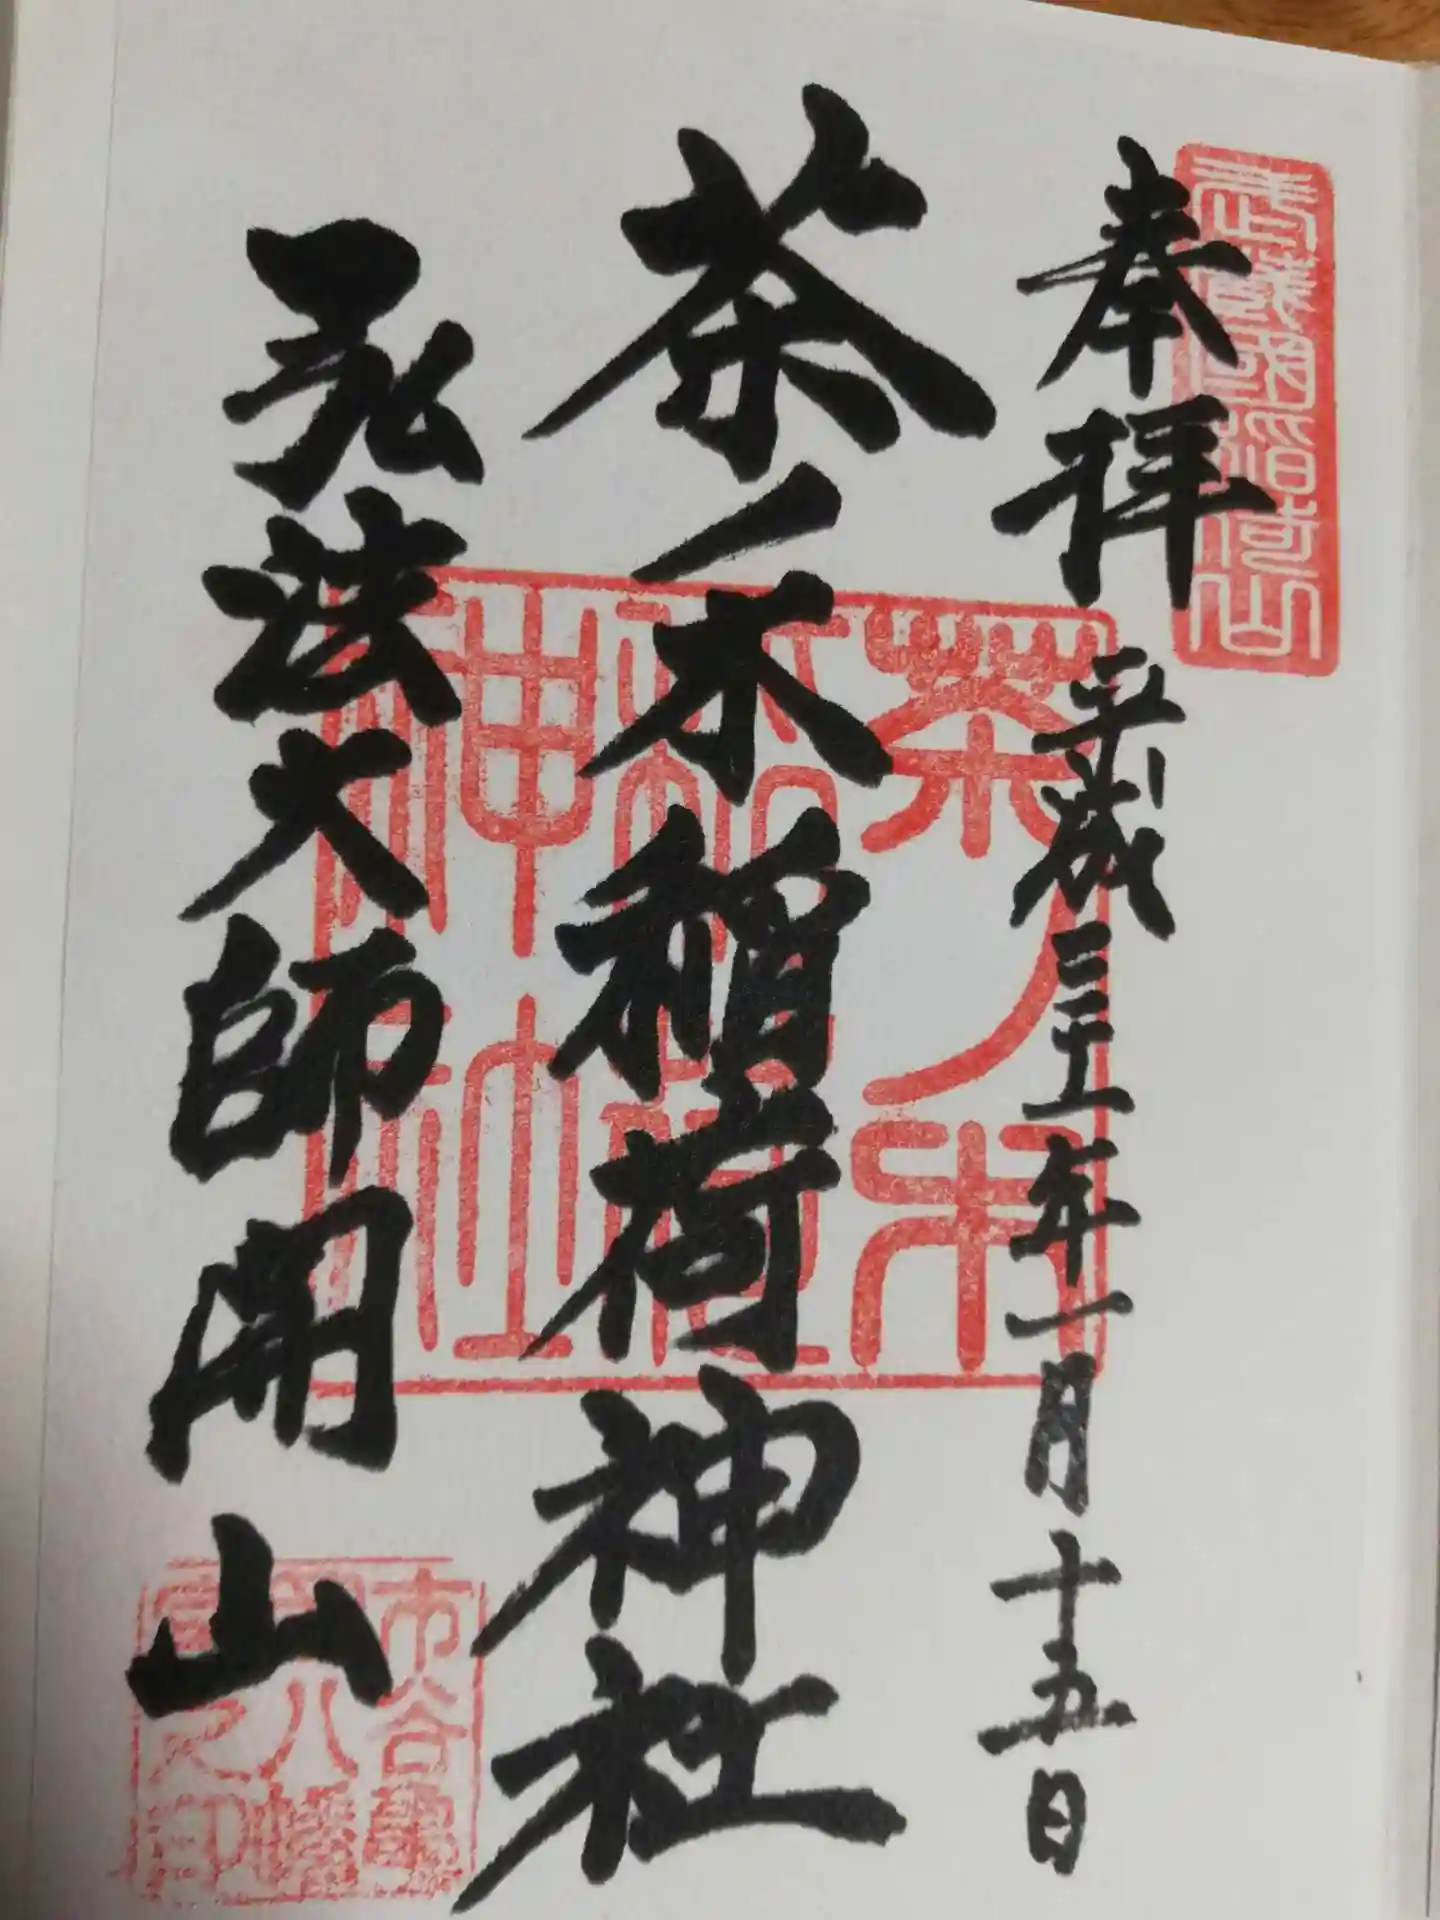 武藏國稲荷山
奉拝 平成三十一年一月十五日
茶ノ木稲荷神社
茶ノ木
稲荷
神社
弘法大師開山
市谷龜
岡八幡
宮之印